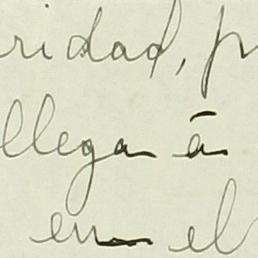 ridad, p
llega á
en el